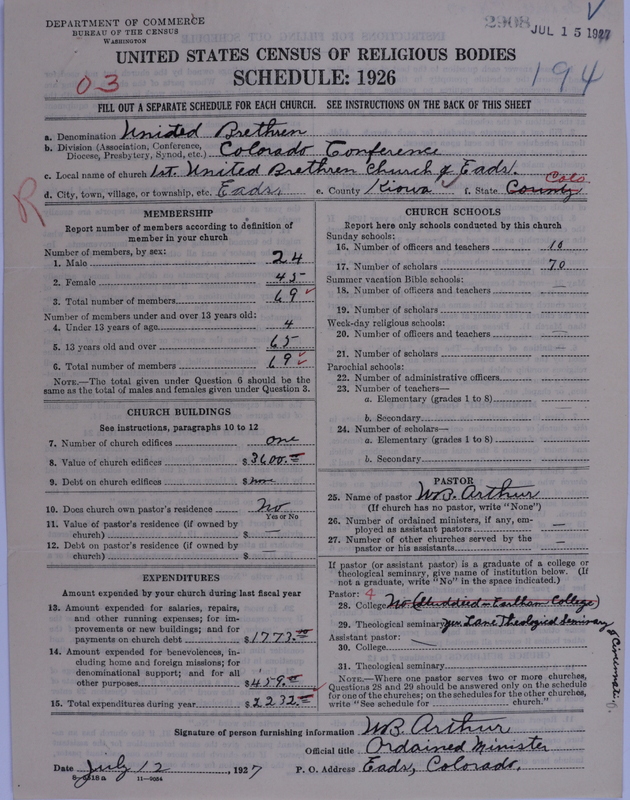 DEPARTMENT OF COMMERCE
BUREAU OF THE CENSUS
WASHINGTON
2908
JUL 15 1927
UNITED STATES CENSUS OF RELIGIOUS BODIES
SCHEDULE: 1926
03
194
FILL OUT A SEPARATE SCHEDULE FOR EACH CHURCH. SEE INSTRUCTIONS ON THE BACK OF THIS SHEET
a. Denomination United Brethren
b. Division (Association, Conference, Diocese, Presbytery, Synod, etc.) Colorado Conference
c. Local name of church 1st. United Brethren Church of Eads.
d. City, town, village, or township, etc. Eads, e. County Kiowa f. State County Colo
R
MEMBERSHIP
Report number of members according to definition of
member in your church
Number of members, by sex:
1. Male 24
2. Female 45
3. Total number of members 69
Number of members under and over 13 years old:
4. Under 13 years of age 4
5. 13 years old and over 65
6. Total number of members 69
NOTE.—The total given under Question 6 should be
same as the total of males and females given under Question 3.
CHURCH BUILDINGS
See instructions, paragraphs 10 to 12
7. Number of church edifices one
8. Value of church edifices $3600.00
9. Debt on church edifices $none
10. Does church own pastor's residence No
Yes or No
11. Value of pastor's residence (if owned by
church) $ —
12. Debt on pastor's residence (if owned by
church) $ —
EXPENDITURES
Amount expended by your church during last fiscal year
13. Amount expended for salaries, repairs,
and other running expenses; for improvements
or new buildings; and for
payments on church debt $1773.
14. Amount expended for benevolences, including
home and foreign missions; for
denominational support; and for all
other purposes $459.00
15. Total expenditures during year $2232.00
CHURCH SCHOOLS
Report here only schools conducted by this church
Sunday schools:
16. Number of officers and teachers 10
17. Number of scholars 70
Summer vacation Bible schools:
18. Number of officers and teachers —
19. Number of scholars —
Week-day religious schools:
20. Number of officers and teachers —
21. Number of scholars
Parochial schools:
22. Number of administrative officers
23. Number of teachers—
a. Elementary (grades 1 to 8)
b. Secondary
24. Number of scholars—
a. Elementary (grades 1 to 8)
b. Secondary
PASTOR
25. Name of pastor W.P. Arthur
(If church has no pastor, write "None")
26. Number of ordained ministers, if any, employed
as assistant pastors —
27. Number of other churches served by the
pastor or his assistants —
If pastor (or assistant pastor) is a graduate of a college or
theological seminary, give name of institution below. (If
not a graduate, write "No" in the space indicated.)
Pastor: 4
28. College No (Studdied - Earlham College)
29. Theological seminary yes Lane Theological Seminary
Cincinnati O.
Assistant pastor:
30. College
31. Theological seminary
NOTE.—Where one pastor serves two or more churches,
Questions 28 and 29 should be answered only on the schedule
for one of the churches; on the schedules for the other churches,
write "See schedule for church."
Signature of person furnishing information W.P. Arthur
Official title Ordained Minister
Date July 12, 1927 P. O. Address Eads, Colorado.
11—9054